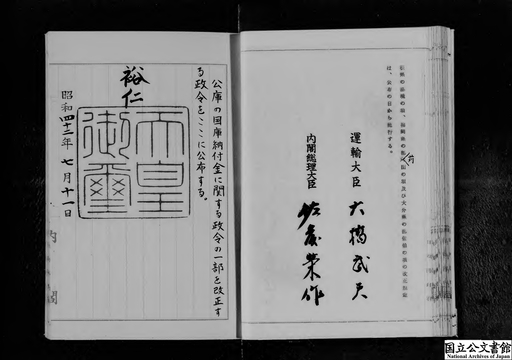 は、公布の日から施行する。
運輸大臣 大橋武夫
内閣総理大臣 佐藤榮作
公庫の国庫納付金に関する政令の一部を改正す
る政令をここに公布する。
裕仁
天皇御璽
昭和四十二年七月十一日
内閣
国立公文書館
National Archives of Japan